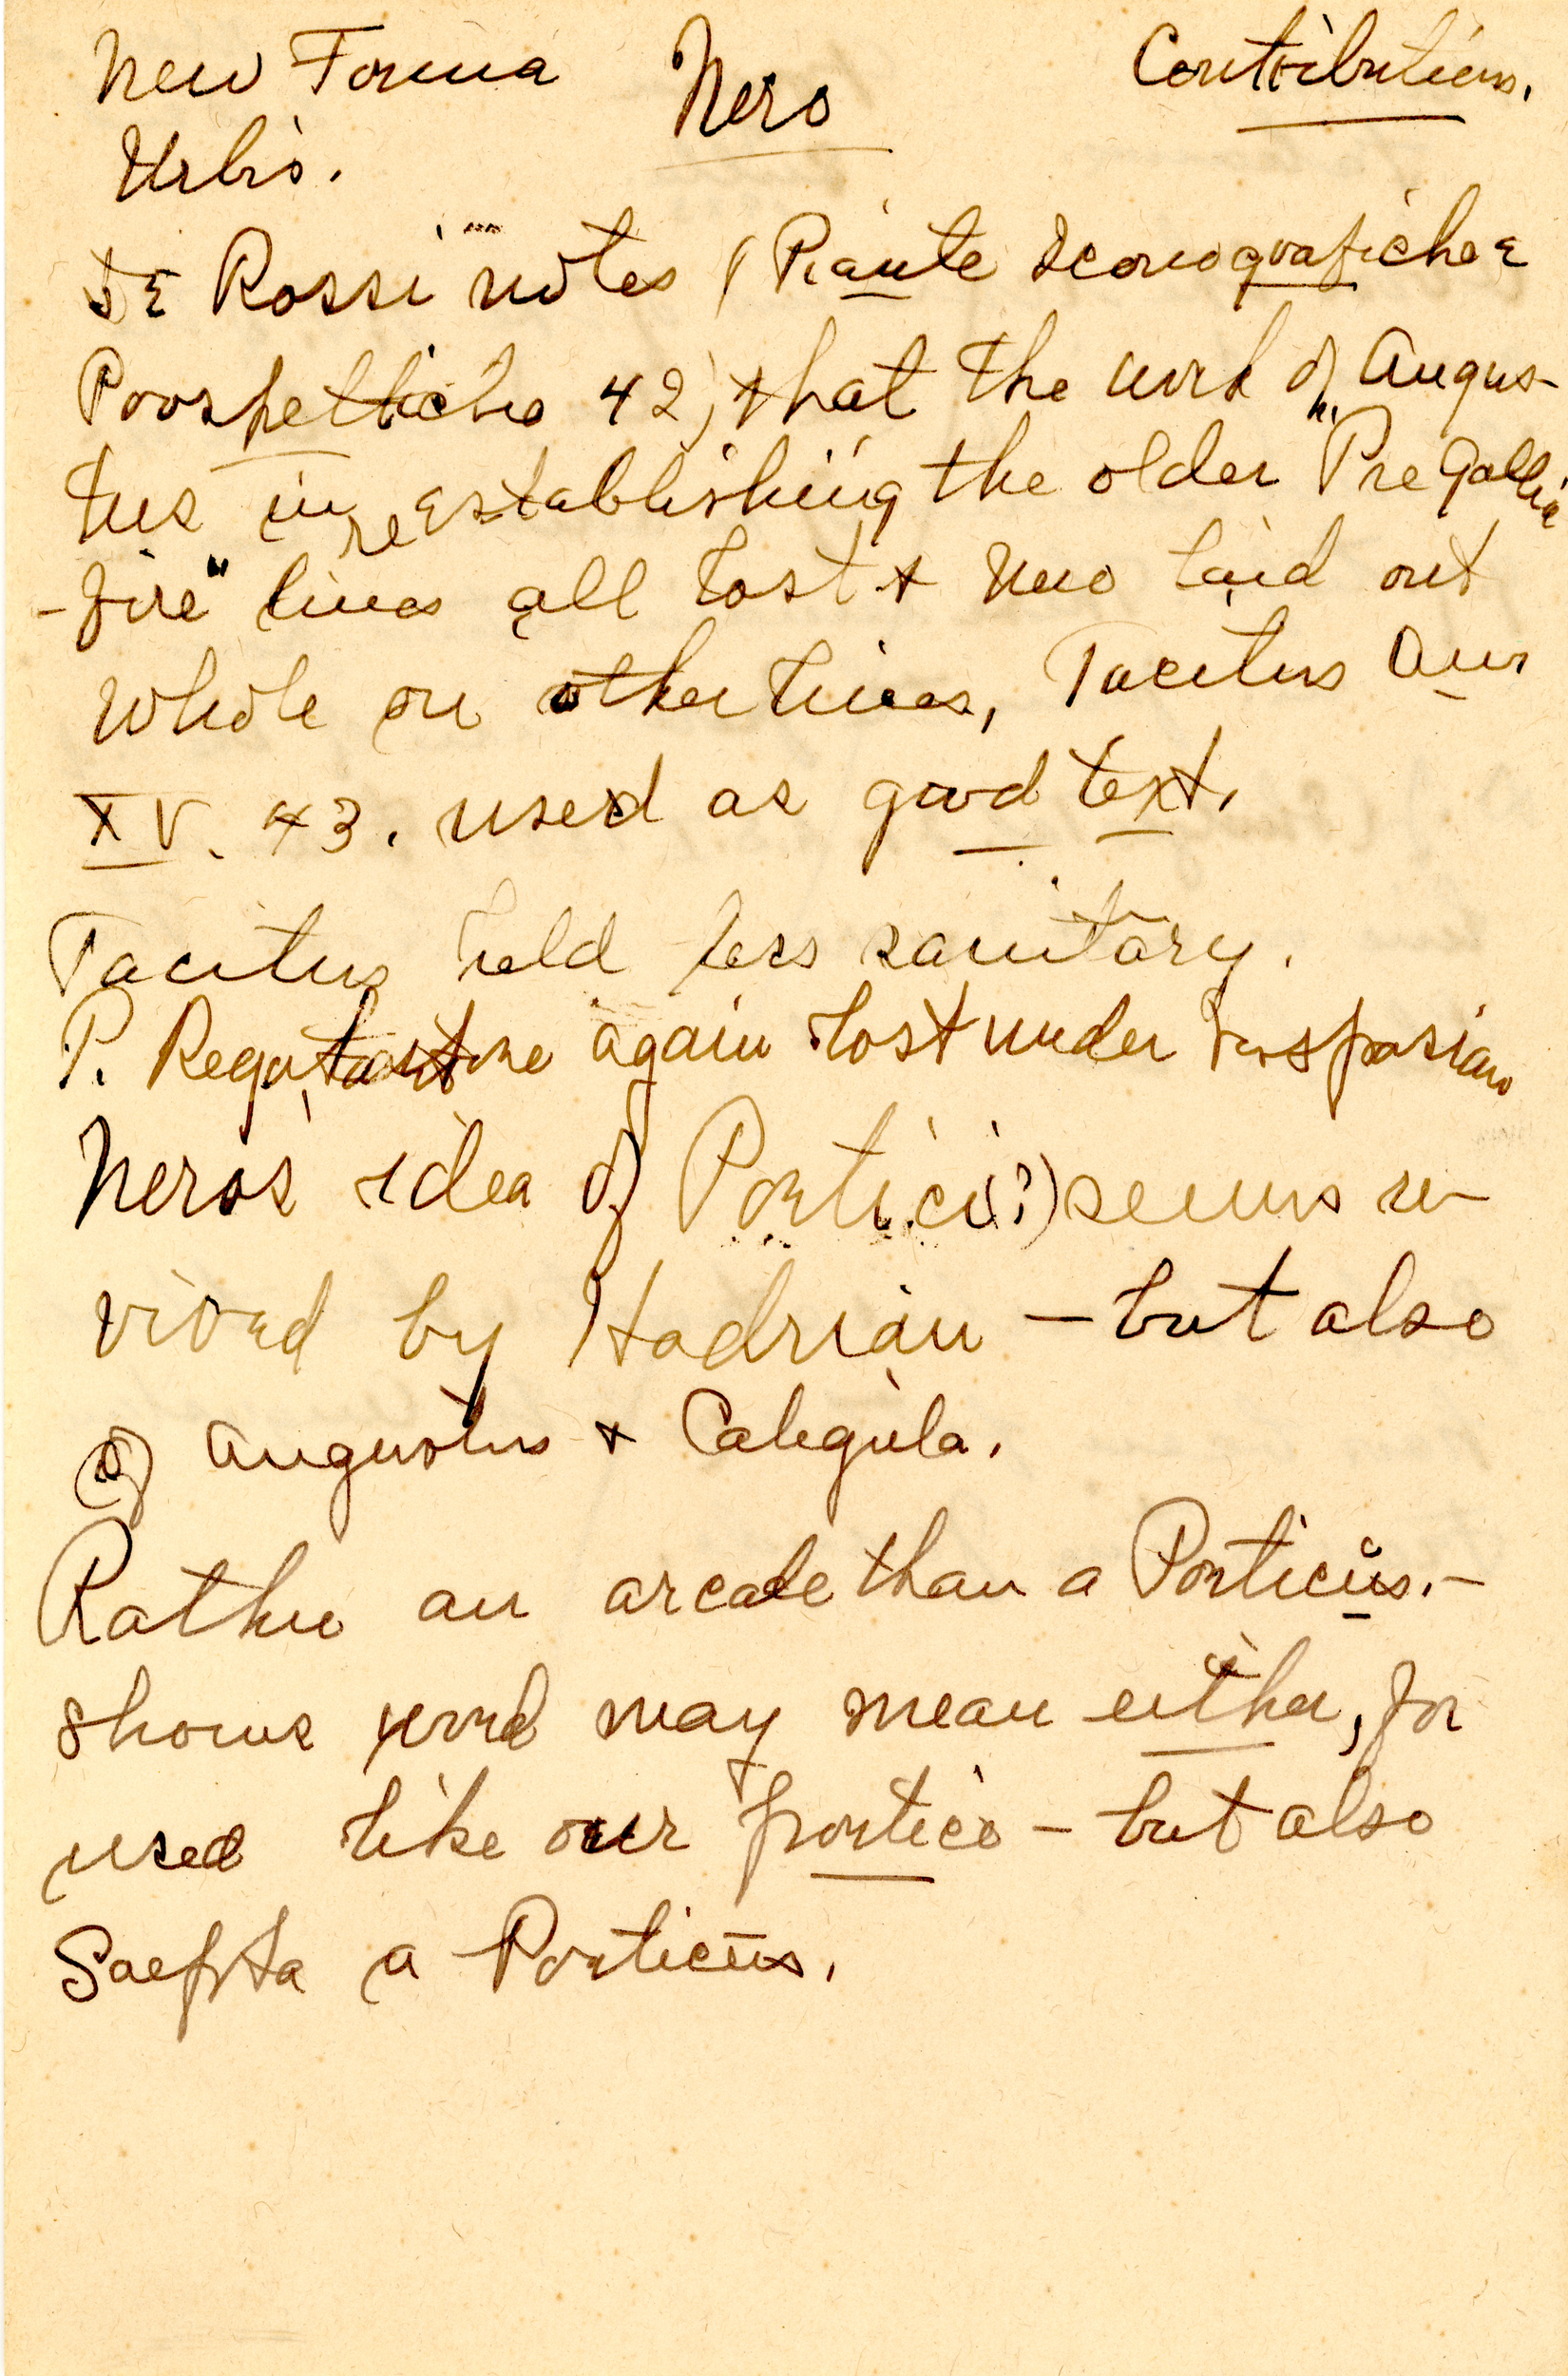 New Forma Nero Contributions.
Urbis.
De Rossi notes (Piante Iconografiche e
Prospettiche 42) that the work of Augus-
tus in reestablishing the older "Pre Gallic
-fire" lines all lost & Nero laid out
whole on other lines, Tacitus Ann
XV. 43. used as good text.
Tacitus held less sanitary.
P. again lost under Vespasian
Nero's idea of Portici(?) seems re-
vived by Hadrian - but also
of Augustus & Caligula.
Rather an arcade than a Porticus. -
shows word may mean either, for
used like our portico - but also
Saepta a Porticus.